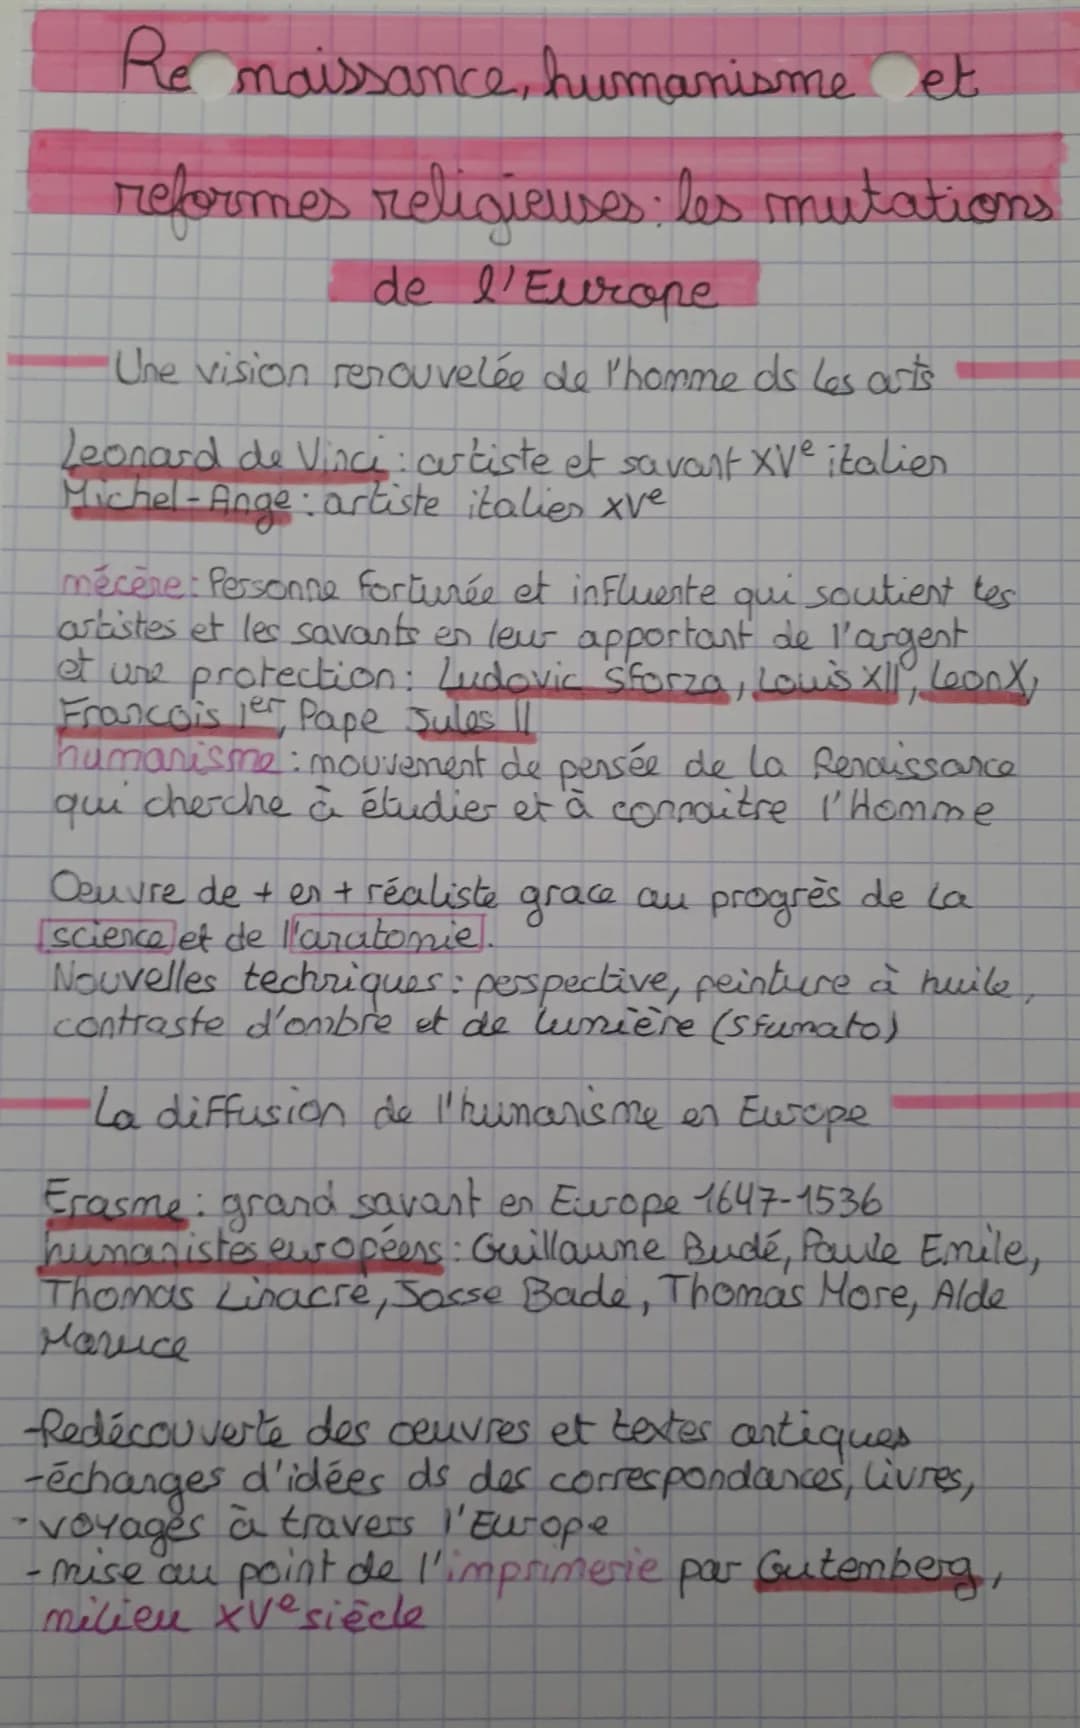 Renaissance, humanisme et
reformes religieuses: les mutations
de l'Europe
Une vision renouvelée de l'homme ds les arts
Leonard de Vinci : artiste et savant XVe italien
Michel-Ange : artiste italien XVe
mécène: Personne fortunée et influente qui soutient les
artistes et les savants en leur apportant de l'argent
et une protection: Ludovic Sforza, Louis XII, Leon X,
Francois 1er, Pape Jules II
humanisme : mouvement de pensée de la Renaissance
qui cherche à étudier et à connaitre l'Homme
Oeuvre de + en + réaliste grace au progrès de la
science et de l'anatomie.
Nouvelles techniques : perspective, peinture à huile,
contraste d'ombre et de lumière (sfumato)
La diffusion de l'humanisme en Europe
Erasme : grand savant en Europe 1647-1536
humanistes européens : Guillaume Budé, Paule Emile,
Thomas Linacre, Josse Bade, Thomas More, Alde
Manuce
-Redécouverte des oeuvres et textes antiques
-échanges d'idées ds des correspondances, livres,
-voyages à travers l'Europe
-mise au point de l'imprimerie par Gutemberg,
milieu XVe siècle